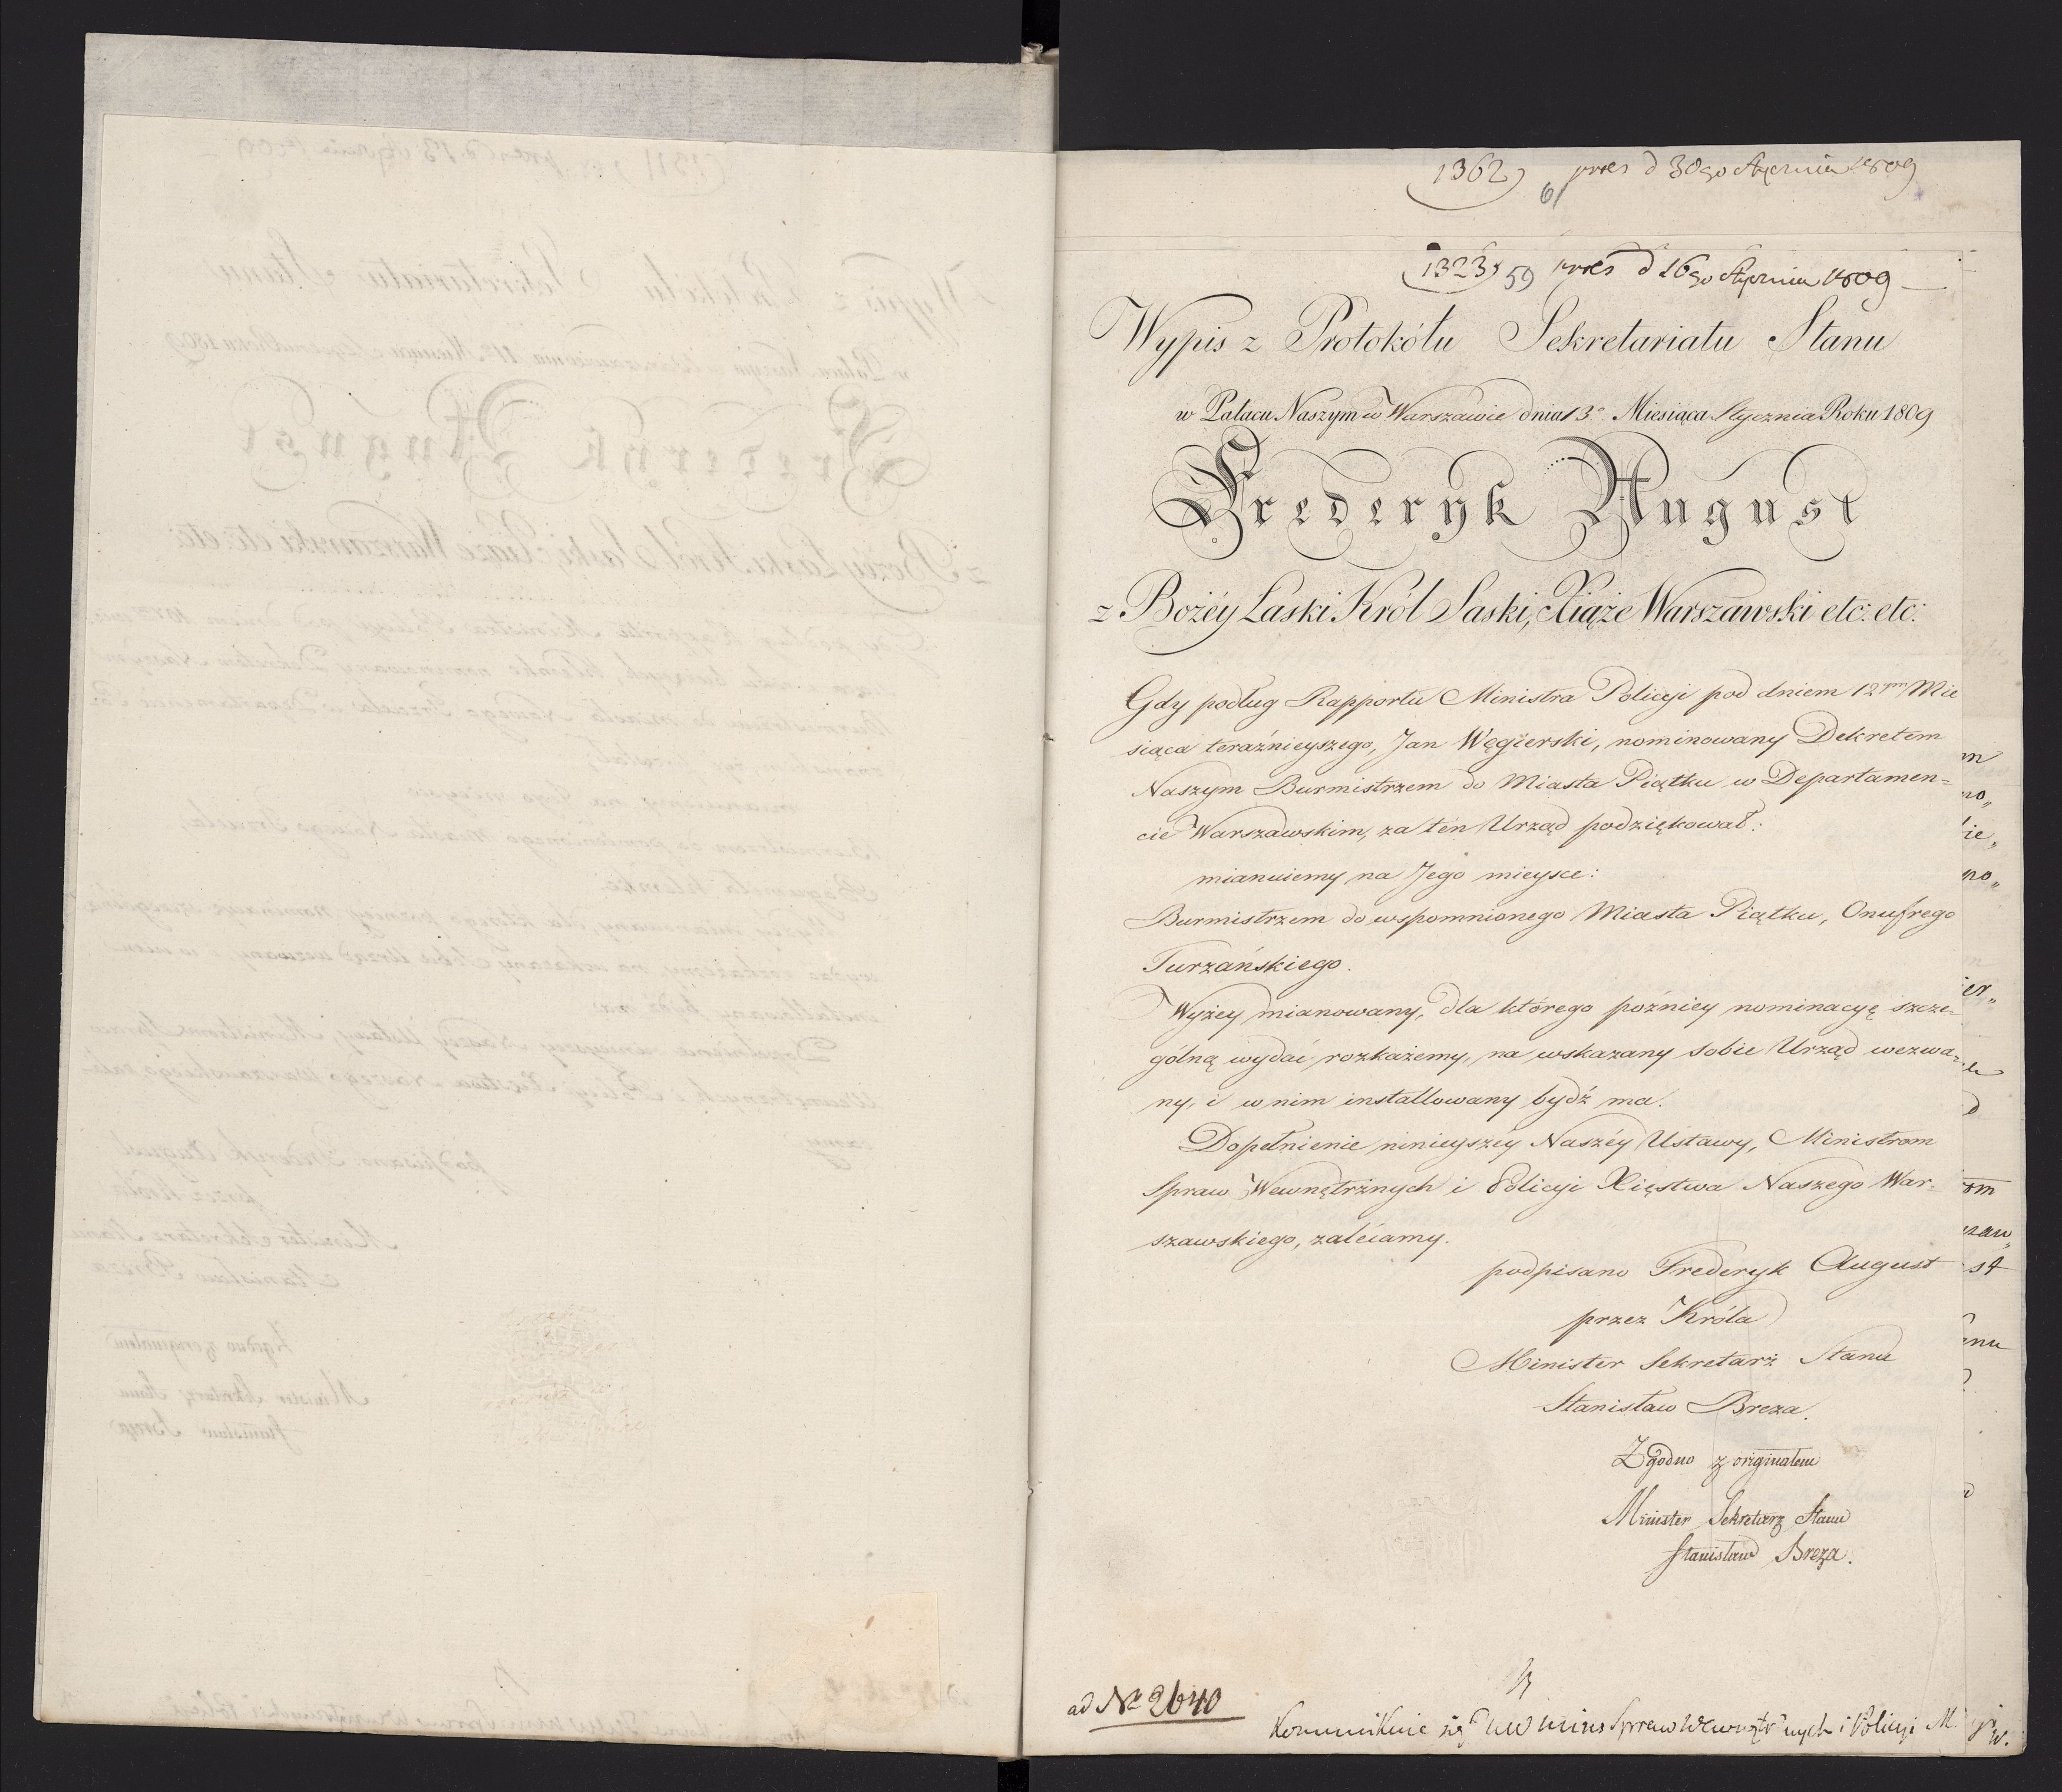 1362) pres d 30go Stycznia 1809
6/
1323) 59 pres d 16go Stycznia 1809
Wypis z Protokółu Sekretariatu Stanu
w Pałacu Naszym w Warszawie dnia 13o Miesiąca Stycznia Roku 1809
Frederyk August
z Bożéy Łaski Król Saski, Xiąże Warszawski etc: etc:
Gdy podług Rapportu Ministra Policyi pod dniem 12ym Mie
siąca teraźnieyszego, Jan Węgierski, nominowany Dekretem
Naszym Burmistrzem do Miasta Piątku w Departamen=
cie Warszawskim, za ten Urząd podziękował:
mianuiemy na Jego mieysce:
Burmistrzem do wspomnionego Miasta Piątku, Onufrego
Turzańskiego.
Wyżey mianowany, dla którego poźniey nominacyę szcze=
gólną wydać rozkażemy, na wskazany sobie Urząd wezwa=
ny, i w nim installowany bydź ma.
Dopełnienie ninieyszéy Naszéy Ustawy, Ministrom
Spraw Wewnętrżnych i Policyi Xięstwa Naszego War=
szawskiego, zalécamy.
podpisano Frederyk August
przez Króla
Minister Sekretarz Stanu
Stanisław Breza.
Zgodno z originałem
Minister Sekretarz Stanu
Stanisław Breza.
ad No 2640
Kommunikuie się JWW Minis Spraw Wewnętrznych i Policyi